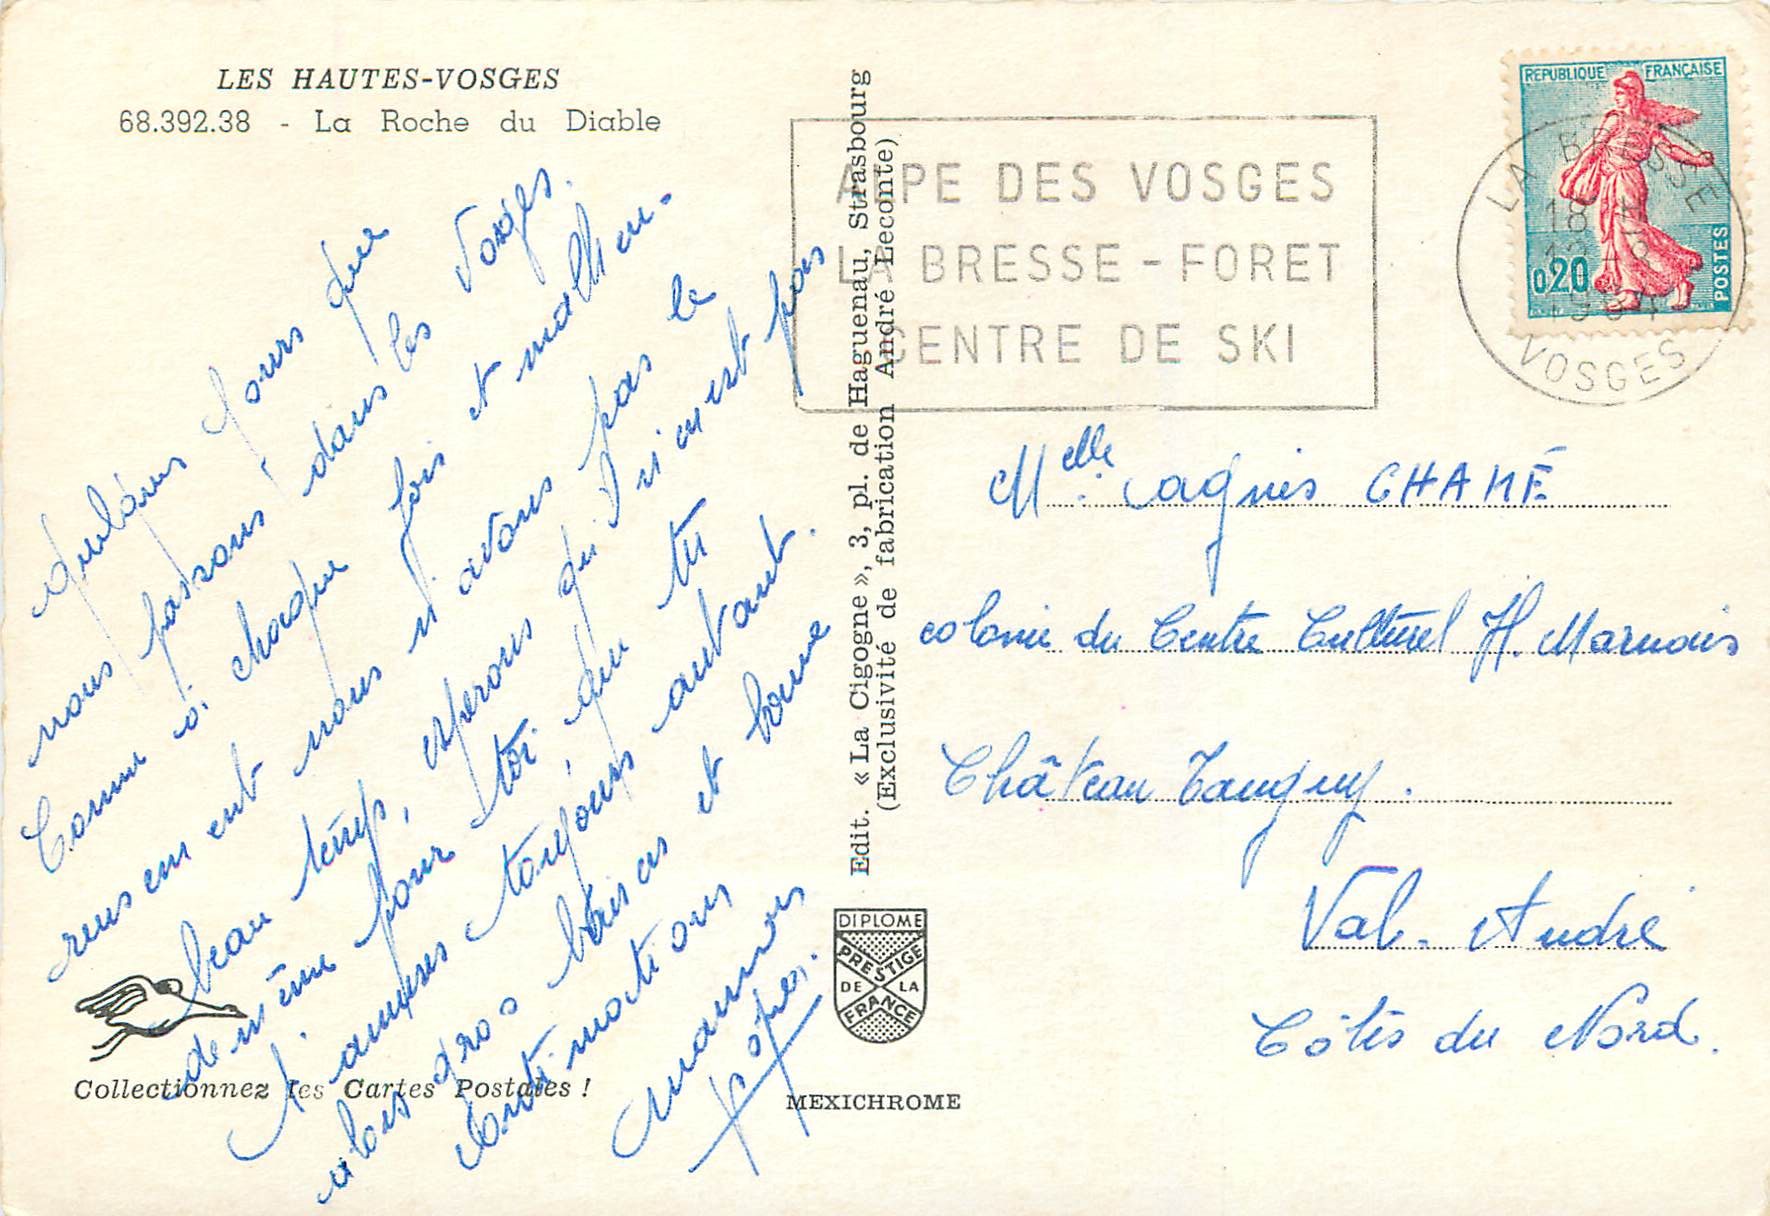 LES HAUTES-VOSGES
68.392.38 - La Roche du Diable
Quelques jours que
nous passons dans les Vosges.
Comme à chaque fois et malheu-
reusement nous n'avons pas le
beau temps, espérons qu'il n'en est pas
de même pour toi, que tu
t'amuses toujours autant.
gros baisers et bonne
continuation
maman
papa.
Collectionnez les Cartes Postales !
Edit. «La Cigogne», 3, pl. de Haguenau, Strasbourg
(Exclusivité de fabrication André Leconte)
DIPLOME
PRESTIGE
DE LA
FRANCE
MEXICHROME
ALPE DES VOSGES
LA BRESSE - FORET
CENTRE DE SKI
REPUBLIQUE FRANÇAISE
0,20
POSTES
LA BRESSE
18 H
12 - 8
1964
VOSGES
Melle Agnès CHAMÉ
colonie du Centre Culturel H.
Château Tanguy.
Val-André
Côtes du Nord.